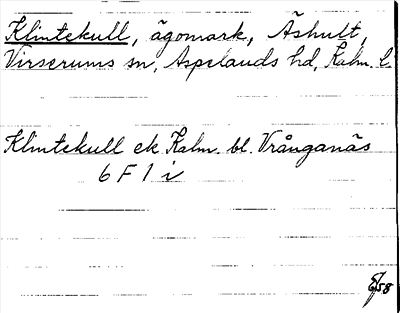 Klintekull, ägomark, Äshult,
Virserums sn, Aspelands hd, Kalm. l.
Klintekull ek. Kalm. bl. Vrånganäs
6 F 1 i